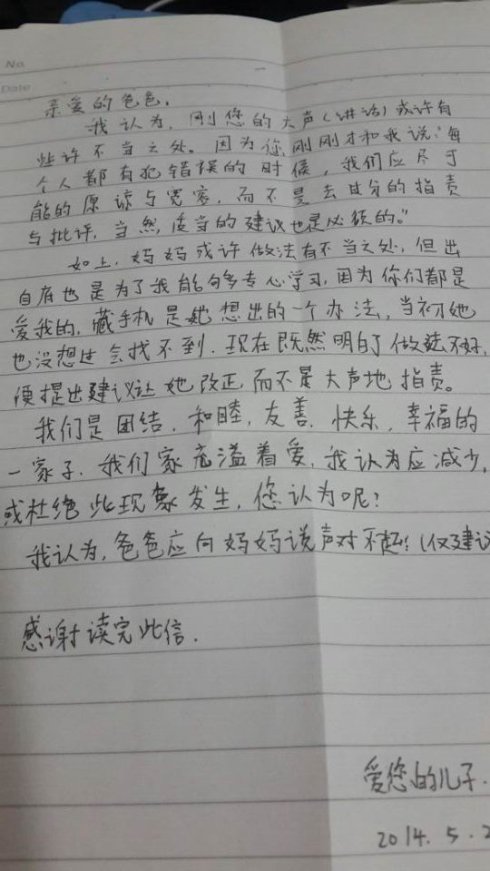 No.
Date
亲爱的爸爸,
我认为,刚您的大声(讲话)或许有
些许不当之处。因为您刚刚才和我说:"每
个人都有犯错误的时候,我们应尽可
能的原谅与宽容,而不是去过分的指责
与批评,当然,适当的建议也是必须的。"
如上,妈妈或许做法有不当之处,但出
自府也是为了我能够多专心学习,因为你们都是
爱我的,藏手机是她想出的一个办法,当初她
也没想过会找不到.现在既然明白了做法不好,
便提出建议让她改正而不是大声地指责。
我们是团结,和睦,友善,快乐,幸福的
一家子.我们家充溢着爱,我认为应减少,
或杜绝此现象发生,您认为呢?
我认为,爸爸应向妈妈说声对不起!(仅建议
感谢读完此信.
爱您的儿子.
2014.5.2